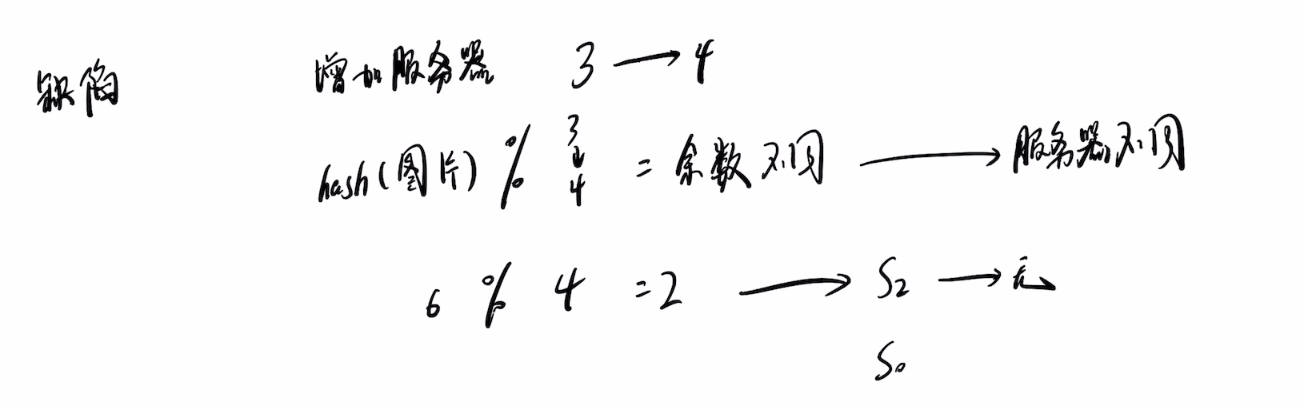 缺陷
增加服务器 3 → 4
hash(图片) % 3 ↓ 4 = 余数不同 → 服务器不同
6 % 4 = 2 → S2 → 无
S0